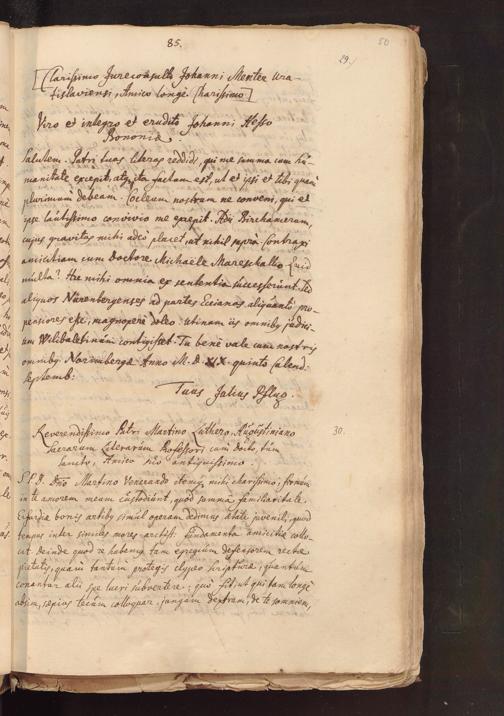 85.
50
29.)
[Clarissimo Jureconsulto Johanni Mentex Wra-
tislaviensi, Amico longè Charissimo]
Viro et integro et erudito Johanni Hesso
Bononia.
Salutem. Patri tuas literas reddidi, qui me summa cum hu-
manitate excepit, atq. ita factum est, ut et ipsi et tibi quam
plurimum debeam. Cocleum nostrum ne conveni, qui et
ipse lautissimo convivio me excepit. Adii Birchamerum,
cujus gravitas mihi adeò placet, ut nihil suprà. Contraxi
amicitiam cum Doctore Michaele Mareschallo. Quid
multa? Hic mihi omnia ex sententia successerunt. Te
aliquos Nürenbergenses ad partes Eccianas aliquantò pro-
pensiores esse, magnopere doleo. Utinam iis omnibus judici-
um Wilibaldinum contigisset. Tu bene vale cum nostris
omnibus. Norimbergæ Anno M. D. XIX. quinto Calend.
Septemb.
Tuus Julius Pflug.
30.
Reverendissimo Patri Martino Luthero, Augustiniano
Sacrarum Literarum Professori cum docto, tum
sancto, Amico suo antiquissimo.
S. P. D. Dno Martino Venerando
in te amorem meum custodiunt, quod summa familiaritate
bonis artibus simul operam dedimus ætate juvenili, quod
tempus inter similes mores arctissi. fundamenta amicitiæ collo-
cat. Deinde quod te habemus tam egregium defensorem rectæ
pietatis, quam tantum protegis clypeo Scripturæ, quantum
conantur alii spe lucri subvertere: quo fit, ut qui tam longè
absim, sæpius tecum colloquar, jungam dextram, de te somniem,